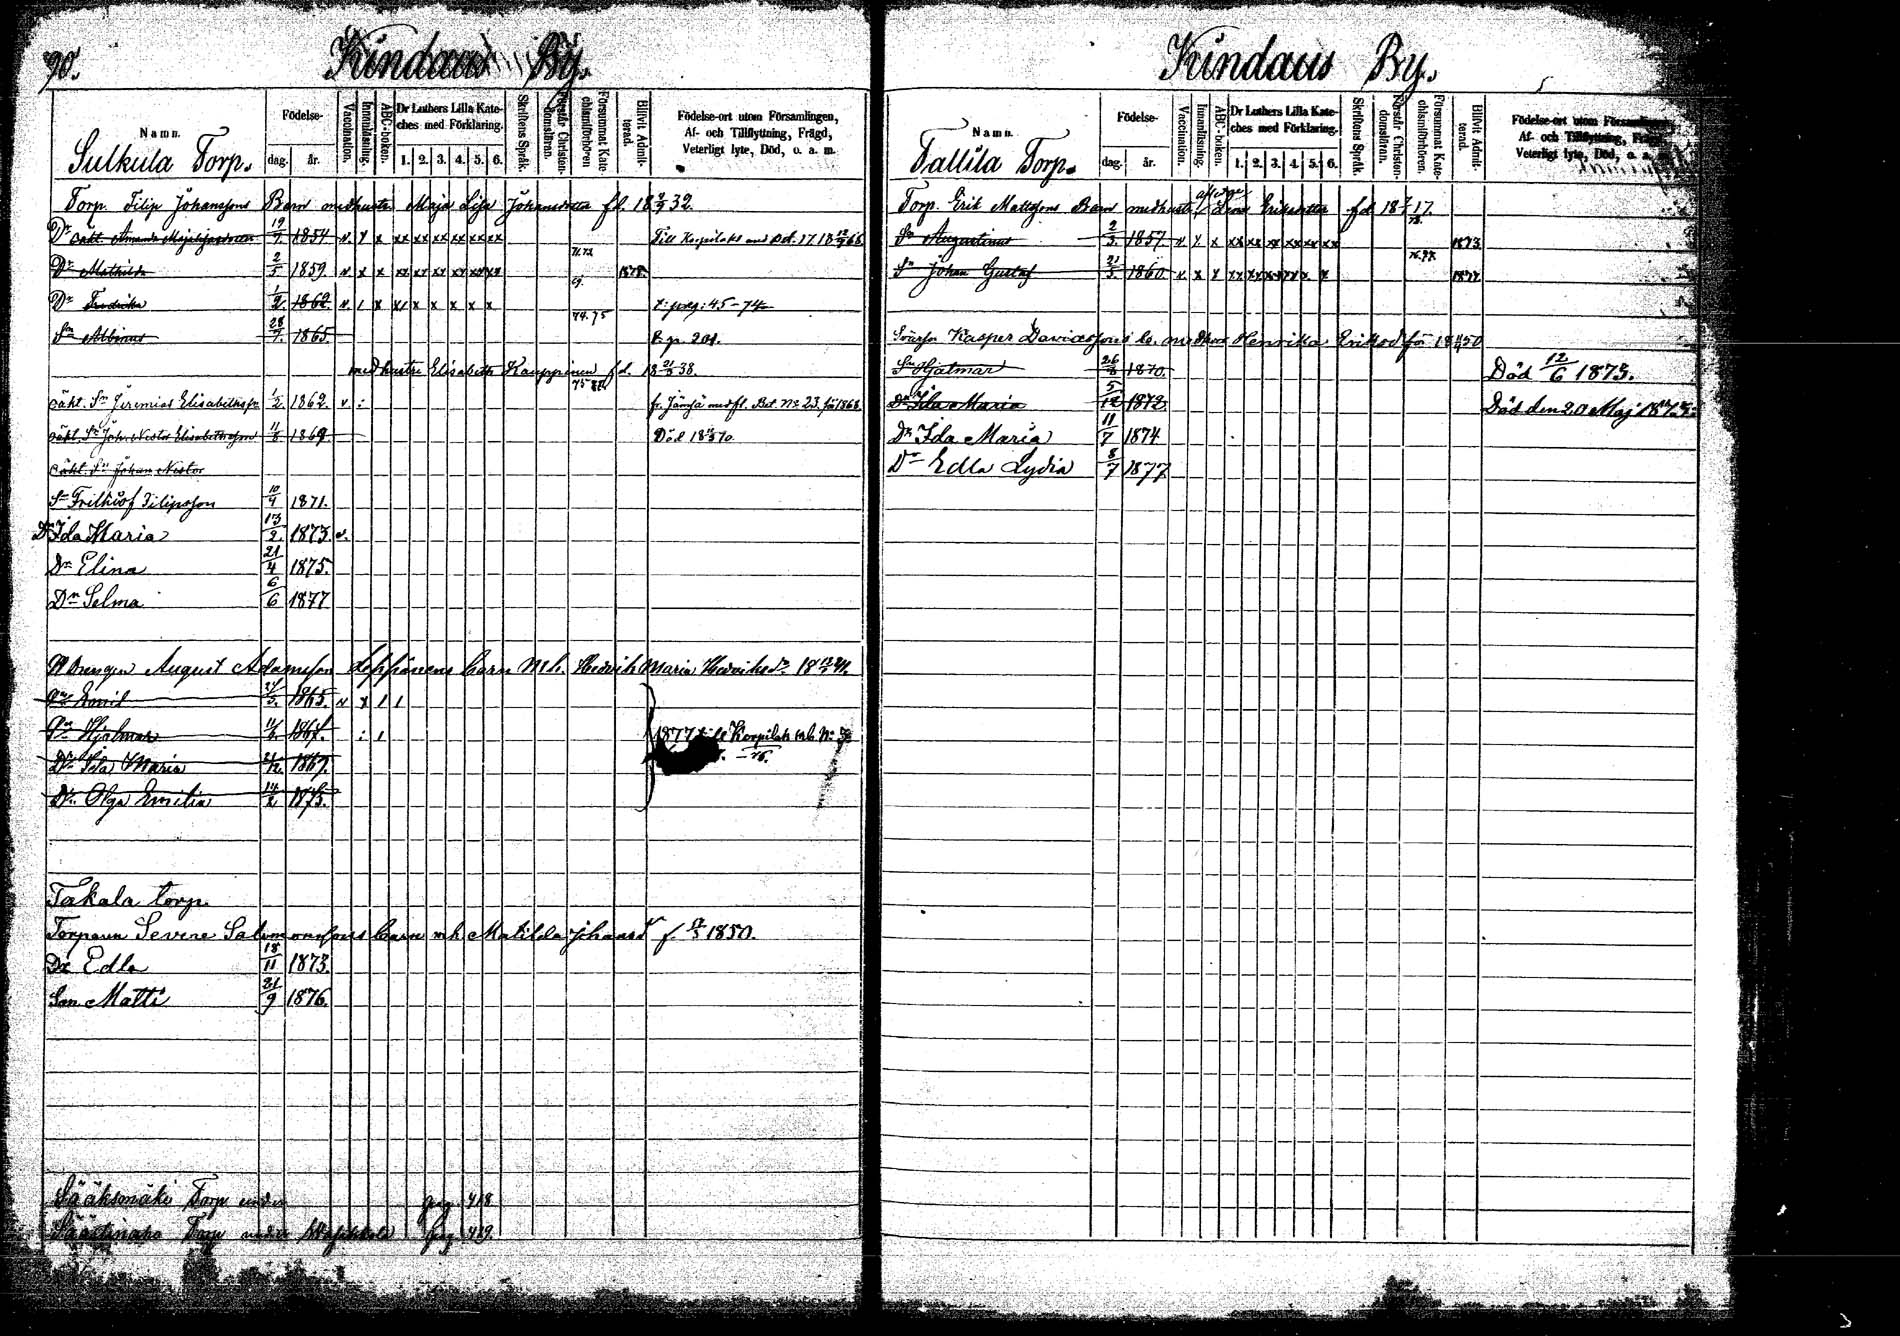 90.
Kindaus By.
Namn.
Födelse-
dag. år.
Vaccination.
Innanläsning.
ABC-boken.
Dr Luthers Lilla Kate-
ches med Förklaring.
1. 2. 3. 4. 5. 6.
Skriftens Språk.
Förstår Christen-
domsläran.
Försummat Kate-
chismiförhören
Blifvit Admit-
terad.
Födelse-ort utom Församlingen,
Af- och Tillflyttning, Frägd,
Veterligt lyte, Död, o. a. m.
Sulkula Torp.
Torp. Filip Johanssons Barn med hustr. Maja Lisa Johansdotter fd. 18 32.
Dr oäkt. Amanda Majalisasdotter 19/7 1854 v. x x xx xx xx xx xx xx Till Korpilaks 68.
Dr Mathilda 2/5 1859. v x x xx xx xx xx xx xx 71.72 1878.
Dr Fredrika 1/2. 1862. v. 1 x x1 x x x x x 69. t. pag: 45-74
Sn Albinus 28/7. 1865. 74. 75 t. p. 201.
med hustru Elisabeth Kauppinen fd. 18 38.
oäkt. Sn Jeremias Elisabethsson 1/2. 1862. v : fr. Jämsä med fl. Bet. No 23. för 1868
oäkt. Sn Joh. Nestor Elisabethsson 11/8 1869 Död 18 70.
oäkt. Sn Johan Nestor
Sn Frithiof Filipsson 10/4 1871.
Dr Ida Maria 13/2. 1873. v.
Dr Elina 21/4 1875.
Dr Selma 6/6 1877
Drengen August Adamsson Leppänens barn M.h. Hedvik Maria Hedviksdr. 18 41.
Sn Emil 24/3. 1865. v x 1 1
Sn Hjalmar 11/6. 1867. : 1 1877 till Korpilaks
Dr Ida Maria 1869.
Dr Olga Emilia 14/2 1873.
Takala torp.
Torparen Severe Salomonssons barn m.h. Matilda Johansd f. 1850.
Dr Edla 18/11 1873.
Son Matti 21/9 1876.
Sääksmäki Torp under pag. 418
Torp under pag 419.
Kindaus By.
Namn.
Födelse-
dag. år.
Vaccination.
Innanläsning.
ABC-boken.
Dr Luthers Lilla Kate-
ches med Förklaring.
1. 2. 3. 4. 5. 6.
Skriftens Språk.
Förstår Christen-
domsläran.
Försummat Kate-
chismiförhören.
Blifvit Admit-
terad.
Födelse-ort utom Församlingen,
Af- och Tillflyttning, Frägd,
Veterligt lyte, Död, o. a. m.
Tallila Torp.
Torp. Erik Mattssons Barn med hustr. Lena Eriksdotter fd 18 17.
Sn Augustinus 2/3. 1857. v x x xx xx xx xx xx xx 73. 1873
Sn Johan Gustaf 21/5. 1860 v x x xx xx xx xx x x 76.77. 1877
Kasper Davidssons b. med hust Henrika Eriksd för 18 50
Sn Hjalmar 26/8 1870. Död 12/6 1873.
Dr Ida Maria 5/12 1872. Död den 20 Maj
Dr Ida Maria 11/7 1874
Dr Edla Lydia 8/7 1877